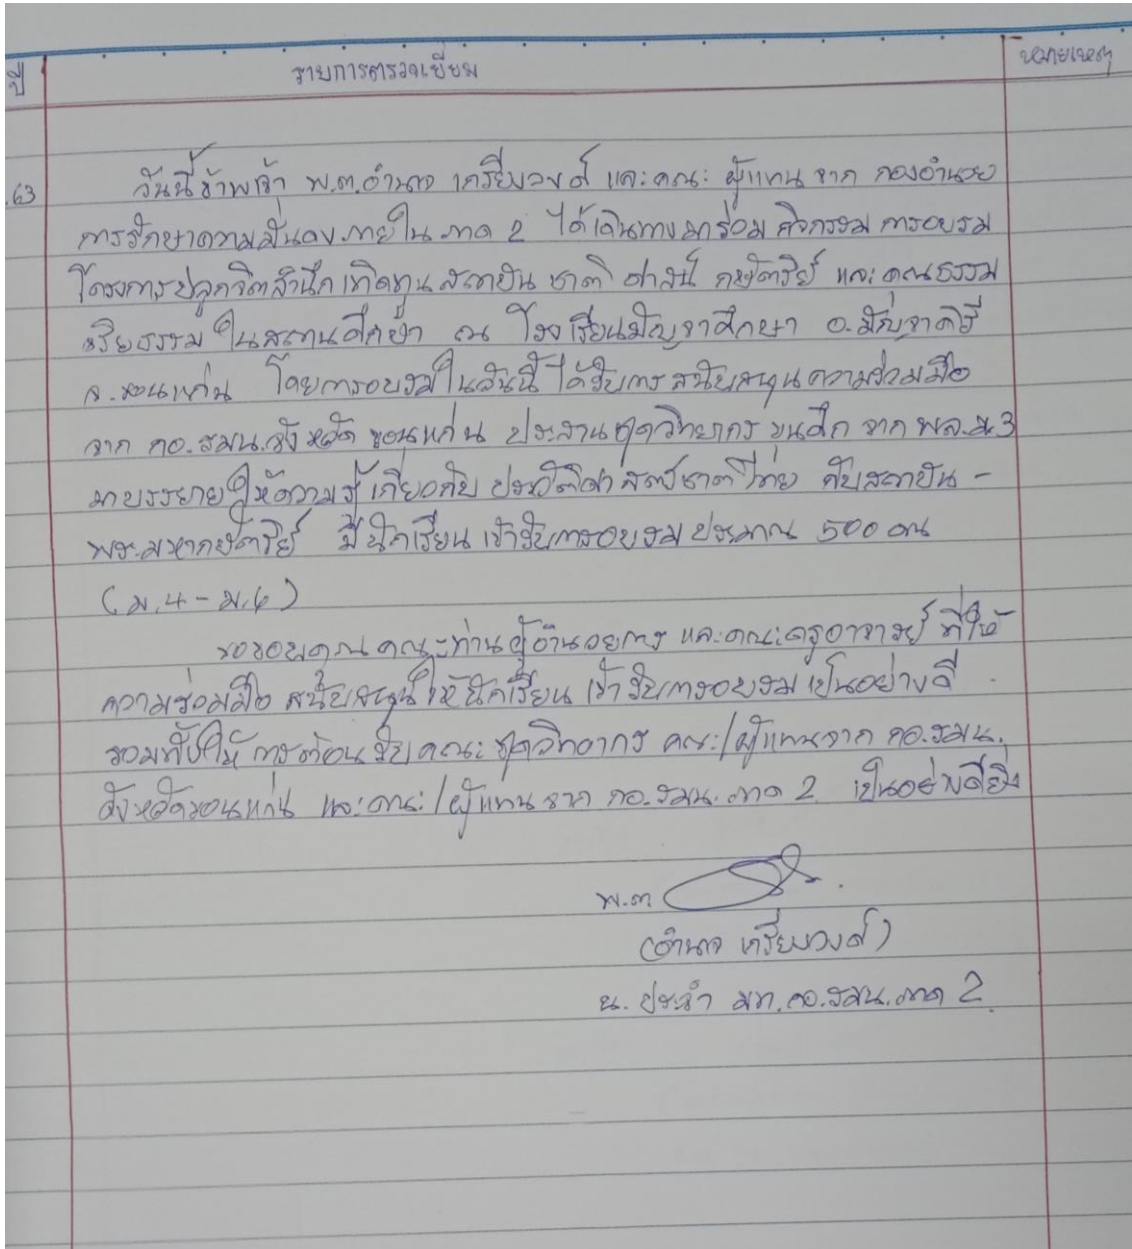 ปี รายการตรวจเยี่ยม หมายเหตุ
.63 วันนี้ข้าพเจ้า พ.ต.อำนาจ เกรียงวงศ์ และคณะ ผู้แทน จาก กองอำนวย
การรักษาความมั่นคงภายใน ภาค 2 ได้เดินทางมาร่วม กิจกรรม การอบรม
โครงการปลูกจิตสำนึก เทิดทูน สถาบัน ชาติ ศาสน์ กษัตริย์ และคุณธรรม
จริยธรรม ในสถานศึกษา ณ โรงเรียนมัญจาศึกษา อ.มัญจาคีรี
จ.ขอนแก่น โดยการอบรมในวันนี้ ได้รับการสนับสนุน ความร่วมมือ
จาก กอ.รมน.จังหวัด ขอนแก่น ประสานชุดวิทยากร ขุนศึก จาก พล.ม.3
มาบรรยาย ให้ความรู้ เกี่ยวกับ ประวัติศาสตร์ชาติไทย กับสถาบัน -
พระมหากษัตริย์ มีนักเรียน เข้ารับการอบรม ประมาณ 500 คน
(ม.4 - ม.6)
ขอขอบคุณ คณะท่านผู้อำนวยการ และคณะครูอาจารย์ ที่ให้
ความร่วมมือ สนับสนุนให้นักเรียน เข้ารับการอบรมเป็นอย่างดี
รวมทั้งให้ การต้อนรับ คณะ ชุดวิทยากร คณะ/ผู้แทนจาก กอ.รมน.
จังหวัดขอนแก่น และคณะ/ผู้แทน จาก กอ.รมน. ภาค 2 เป็นอย่างดียิ่ง
พ.ต.
(อำนาจ เกรียงวงศ์)
น. ประจำ มท. กอ.รมน. ภาค 2